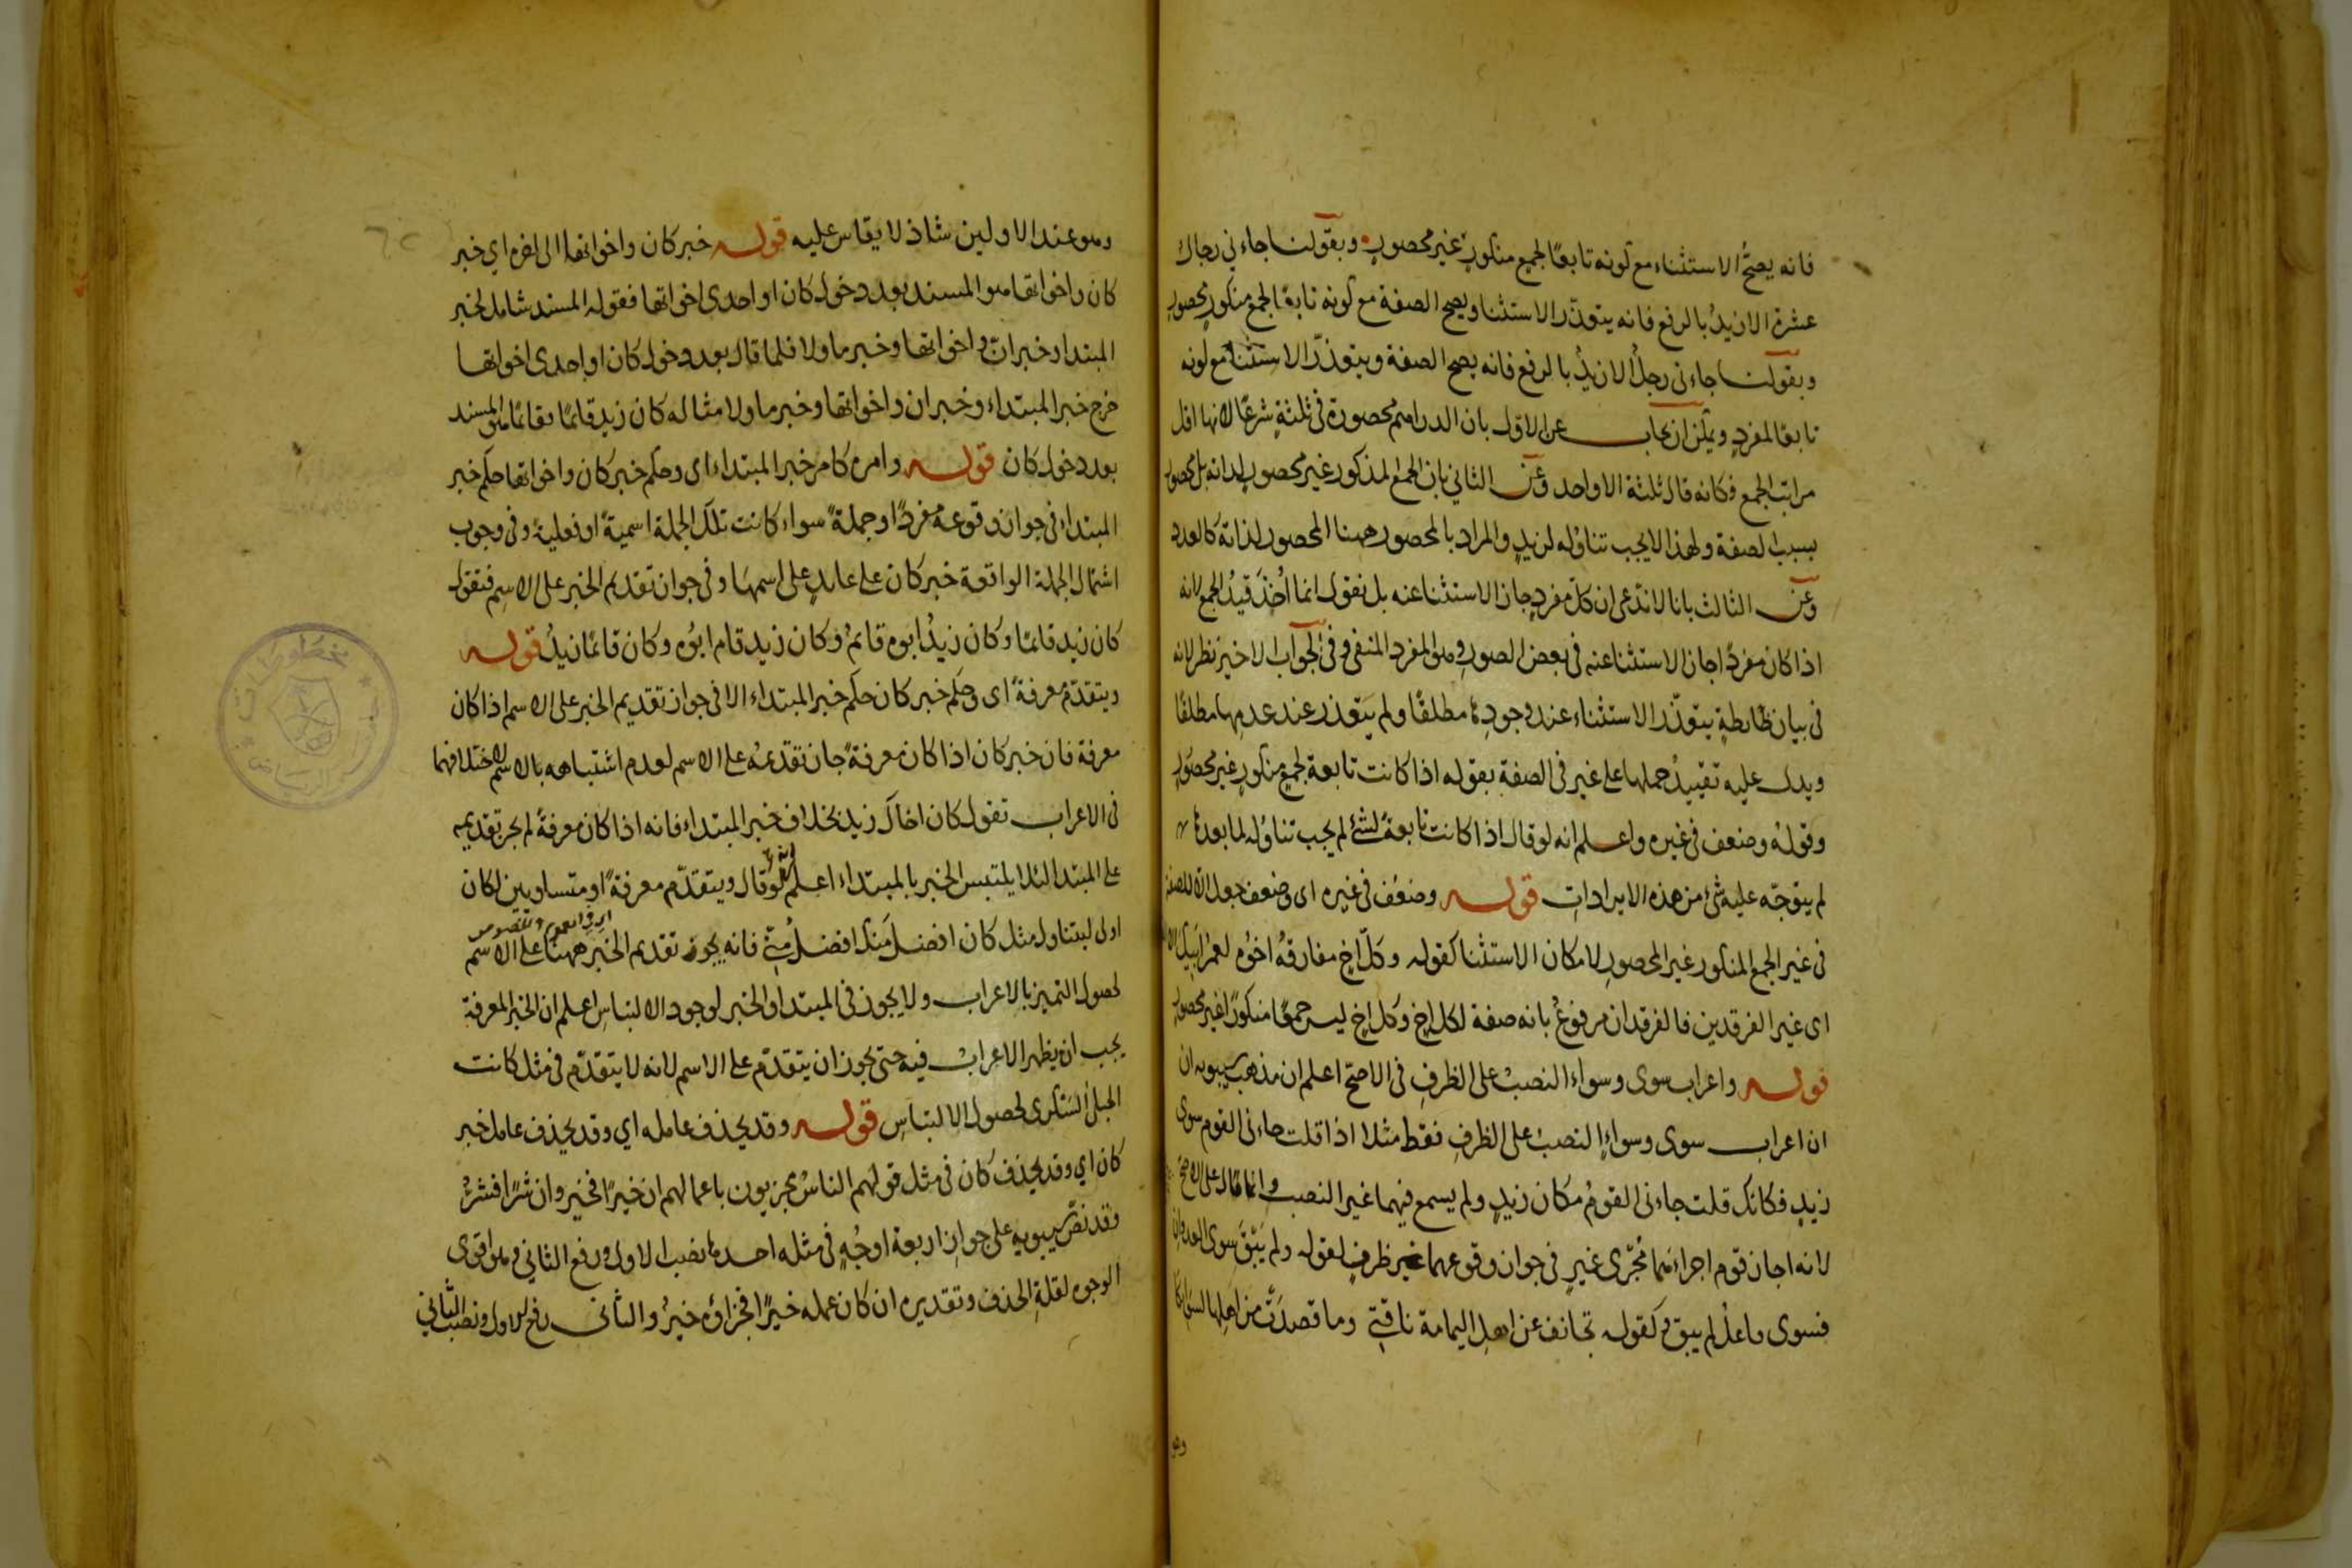 فانه يصحّ الاستثناء مع كونه تابعًا لجمع منكورٍ غير محصورٍ وبقولنا جاءني رجال
عشرة الا زيدٌ بالرفع فانه يتعذّر الاستثنا ويصح الصفة مع كونه تابعًا لجمع منكورٍ محصورٍ
وبقولنا جاءنى رجلٌ الا زيدٌ بالرفع فانه يصح الصفة ويتعذّر الاستثناء مع كونه
تابعًا لمفردٍ ويمكن ان يجاب عن الاوّل بان الدراهم محصورة فى ثلثةٍ شرعًا لانها اقل
مراتب الجمع فكانه قال ثلثة الا واحد وعن الثاني بان الجمع المذكور غير محصورٍ لذاته بل محصور
بسبب الصفة ولهذا لا يجب تناوُله لزيدٍ والمراد بالمحصور ههنا المحصور لذاته كالعدد
وعن الثالث بانا لا ندّعى ان كلّ مفردٍ جاز الاستثنا عنه بل نقول انما اُخِذَ قيدُ الجمع لانه
اذا كان مفردًا جاز الاستثنا عنه فى بعض الصورِ وهو المفرد المنفى وفى الجواب الاخير نظر لانه
فى بيان ظابطةٍ يتعذّر الاستثناء عند وجودِها مطلقًا ولم يتعذر عند عدمِها مطلقًا
ويدل عليه تقييدُ حملها على غير فى الصفة بقوله اذا كانت تابعة لجمعٍ منكورٍ غير محصورٍ
وقولهُ وضعف فى غيره واعلم انه لو قال اذا كانت تابعةً لشئ لم يجب تناوُله لما بعدها
لم يتوجّه عليه شئ من هذه الايراداتِ قوله وضعُف فى غيره اى وضعف جعل الا للصفة
فى غير الجمع المنكور غير المحصورِ لامكان الاستثنا كقوله وكلّ اخٍ مفارقهُ اخوُه لعمرُ ابيك
اى غير الفرقدين فالفرقدان مرفوعٌ بانه صفة لكل اخٍ وكل اخٍ ليس جمعًا منكورًا غير محصورٍ
قوله واعراب سوى وسواء النصبُ على الظرفِ فى الاصحّ اعلم ان مذهب سيبويه ان
ان اعراب سوى وسواءٍ النصبُ على الظرفِ فقط مثلا اذا قلت جاءنى القوم سوى
زيدٍ فكانك قلت جاءنى القومُ مكان زيدٍ ولم يسمع فيهما غير النصب وانما قال على الاصح
لانه اجاز قوم اجراءَهما مُجرَى غيرٍ فى جواز وقوعهما غير ظرفٍ لقوله ولم يَبْقَ سوى العدوان
فسوى فاعل لم يبق وكقوله تجانف عن اهل اليمامة ناقتي وما قصدَتْ من اهلها لسوائكا
وهو
وهو عند الاولين شاذ لا يقاس عليه قوله خبر كان واخواتها الى اخره اي خبر
كان واخواتها هو المسند بعد دخول كان او احدى اخواتها فقوله المسند شامل لخبر
المبتدا وخبر ان واخواتها وخبر ما ولا فلما قال بعد دخول كان او احدى اخواتها
خرج خبر المبتداء وخبر ان واخواتها وخبر ما ولا مثاله كان زيد قائمًا فقائمًا هو المسند
بعد دخول كان قوله وامره كامر خبر المبتداء اى وحكم خبر كان واخواتها حكم خبر
المبتداء فى جواز وقوعه مفردًا وجملةً سواء كانت تلك الجملة اسميةً او فعليةً وفى وجوب
اشتمال الجملة الواقعة خبر كان على عايدٍ على اسمها وفى جواز تقديم الخبر على الاسم فتقول
كان زيد قائمًا وكان زيدٌ ابوه قائمٌ وكان زيد قام ابوُه وكان قائمًا زيدٌ قوله
ويتقدّم معرفةً اى وحكم خبر كان حكم خبر المبتداء الا فى جواز تقديم الخبر على الاسم اذا كان
معرفة فان خبر كان اذا كان معرفةً جاز تقديمُه على الاسم لعدم اشتباهه بالاسم لاختلافهما
فى الاعراب تقول كان اخاك زيد بخلاف خبر المبتداء فانه اذا كان معرفةً لم يجز تقديمه
على المبتدا لئلا يلتبس الخبر بالمبتداء اعلم انه لو قال ويتقدّم معرفةً او متساويين لكان
اولى ليتناول مثل كان افضلَ منك افضلُ منّى فانه يجوز تقديم الخبر ههنا على الاسم
لحصول التميز بالاعراب ولا يجوز فى المبتدا والخبر لوجود الالتباسِ اعلم ان الخبر المعرفة
يجب ان يظهر الاعرابُ فيه حتى يجوز ان يتقدّم على الاسم لانه لا يتقدّم فى مثل كانت
الحبلى السَكرى لحصول الالتباس قوله وقد يحذف عامله اي وقد يحذف عامل خبر
كان اي وقد يحذف كان فى مثل قولهم الناسُ مجزيون باعمالهم ان خيرًا فخير وان شرًا فشرٌ
وقد نصّ سيبويه على جواز اربعة اوجُهٍ فى مثله احدها نصب الاول ورفع الثاني وهو اقوى
الوجوه لقلة الحذف وتقديره ان كان عمله خيرًا فجزاؤه خيرٌ والثانى رفع الاول ونصب الثاني